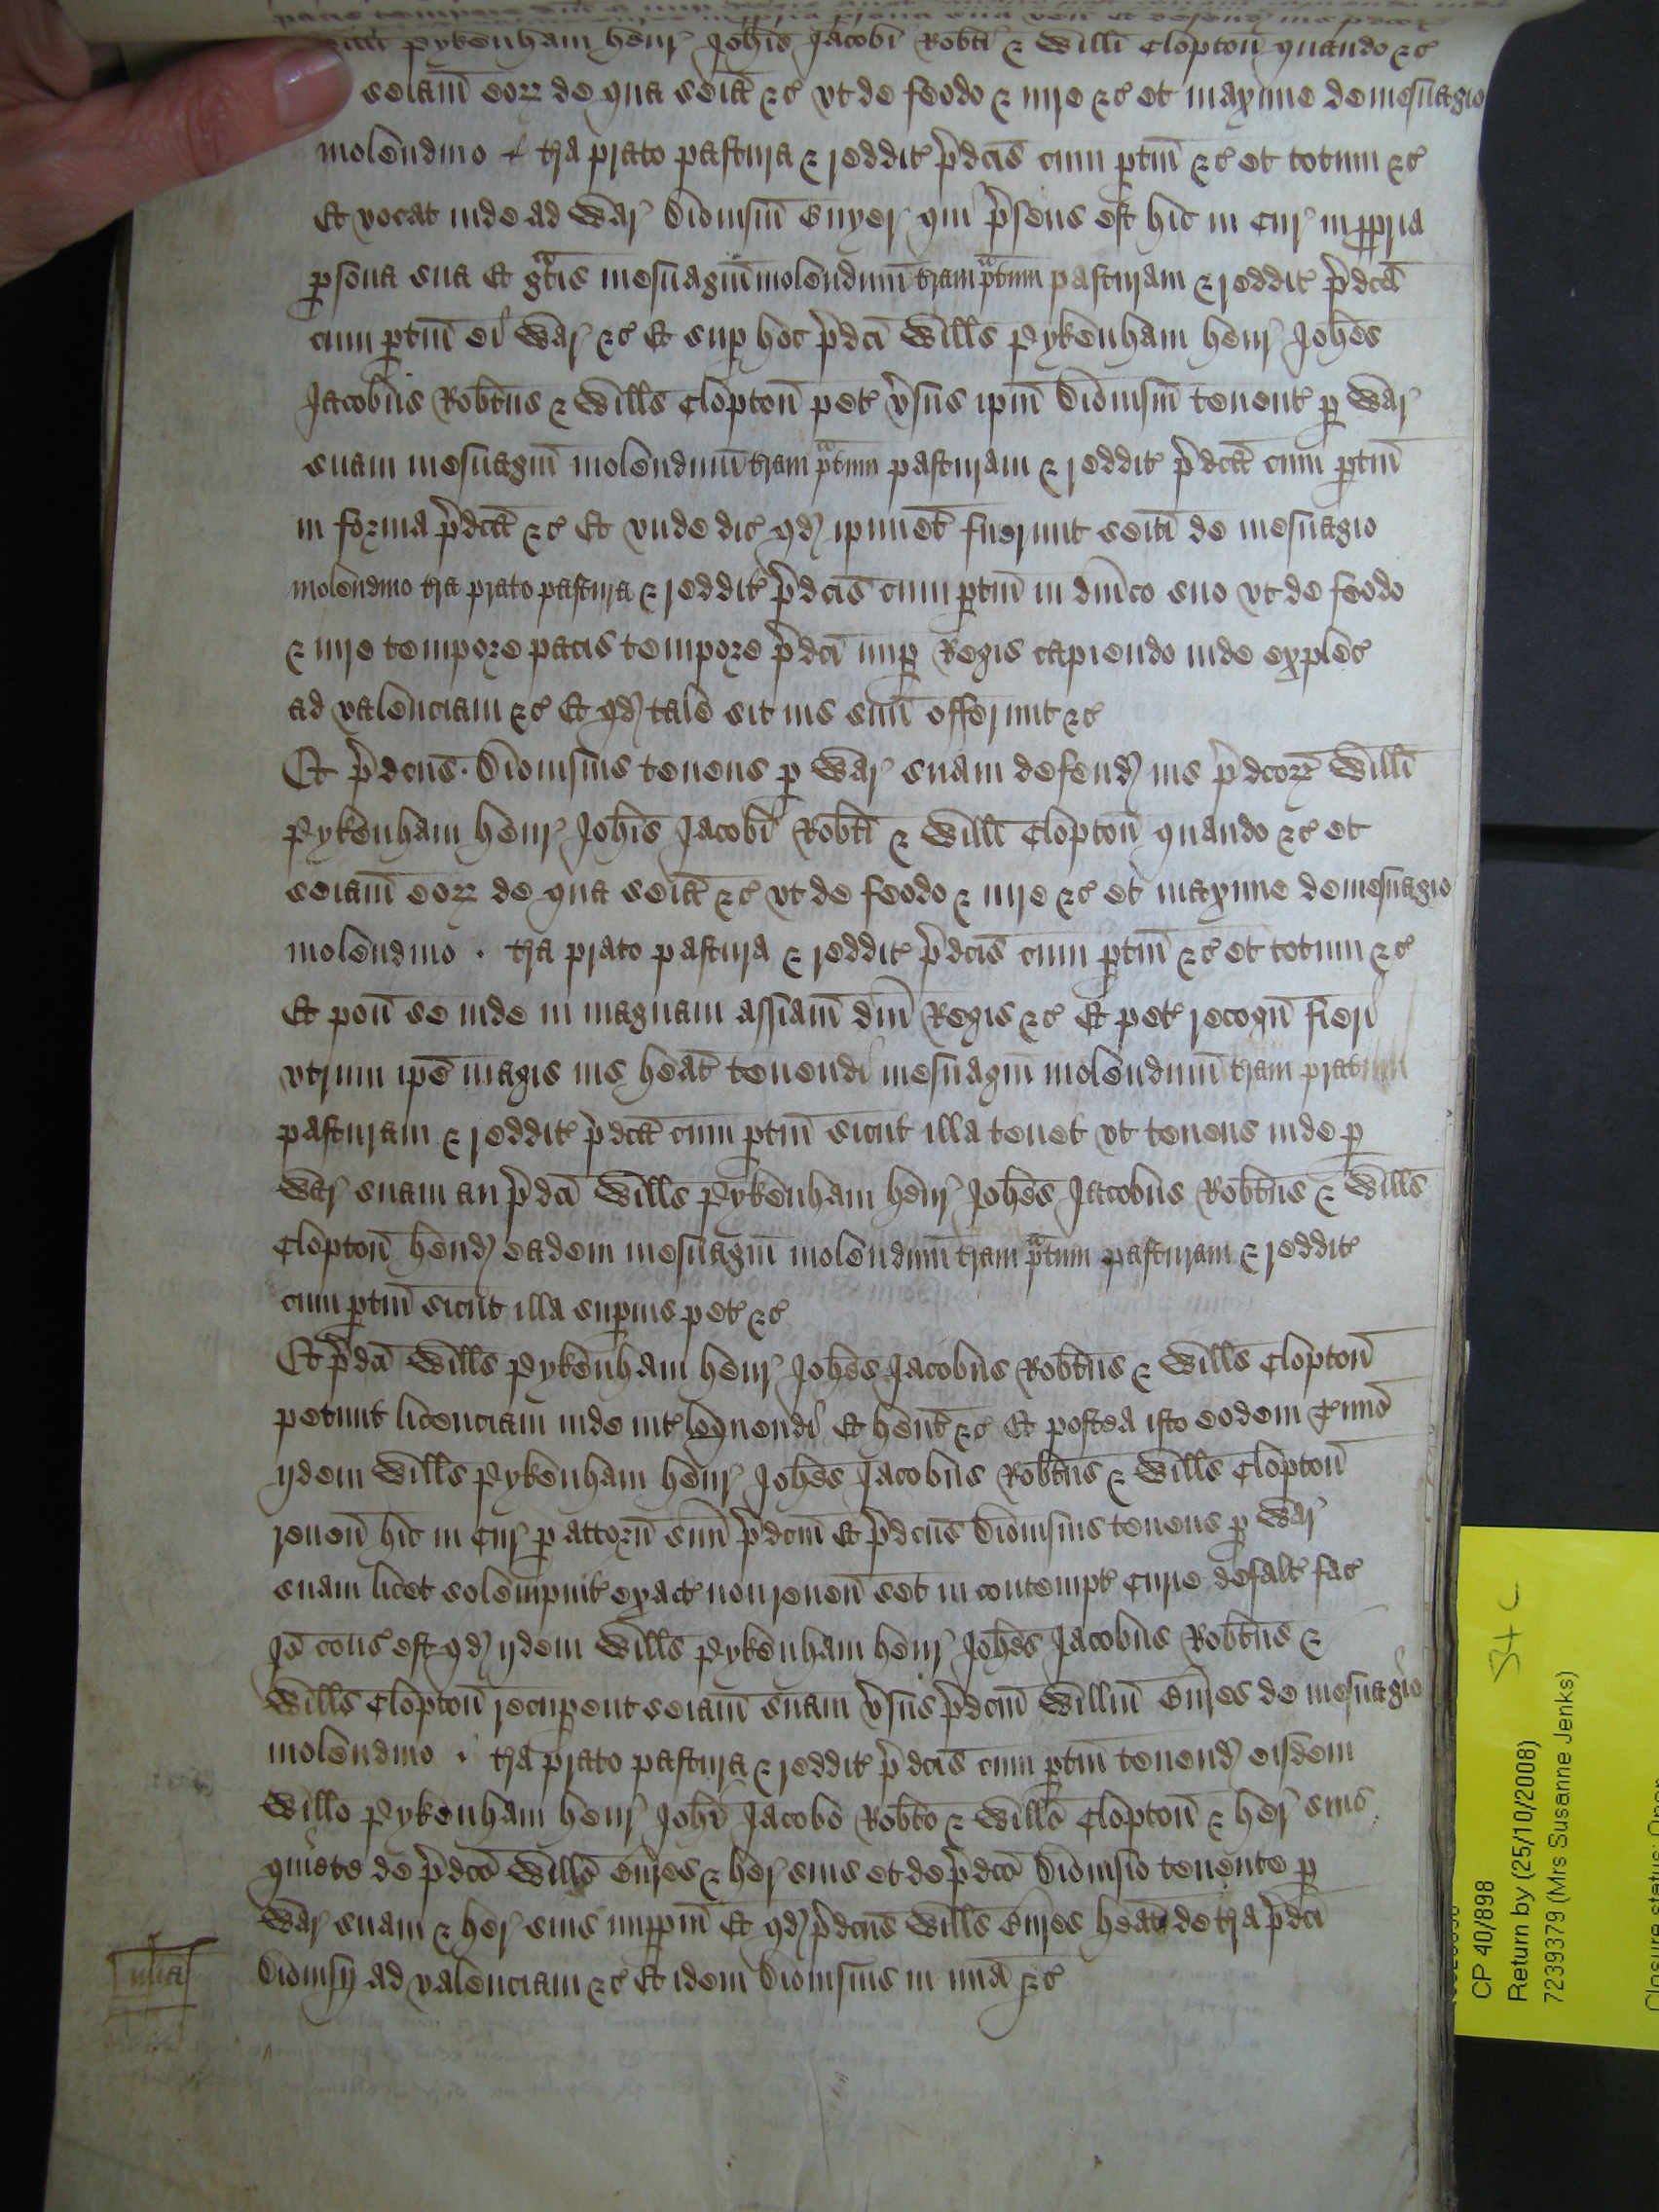 Willi Pykenham Henr Johis Jacobi Robti & Willi Clopton quando &c
seiam eorz de qua seia &c vt de feodo & iure &c et maxime de mesuagio
molendino tra prato pastura & reddit pdcis cum ptin &c et totum &c
Et vocat inde ad War Dionisiu Enyer qui psens est hic in Cur in ppria
psona sua Et gratis mesuagiu molendinu tram pratum pasturam & reddit pdca
cum ptin ei War &c Et sup hoc pdci Wills Pykenham Henr Johes
Jacobus Robtus & Wills Clopton pet vsus ipm Dionisiu tenent p War
suam mesuagiu molendinu tram pratum pasturam & reddit pdca cum ptin
in forma pdca &c Et vnde dic qd ipimet fuerunt seiti de mesuagio
molendino tra prato pastura & reddit pdcis cum ptin in dnico suo vt de feodo
& iure tempore pacis tempore pdci nup Regis capiendo inde explec
ad valenciam &c Et qd tale sit ius suu offerunt &c
Et pdcus Dionisius tenens p War suam defend ius pdcorz Willi
Pykenham Henr Johis Jacobi Robti & Willi Clopton quando &c et
seiam eorz de qua seia &c vt de feodo & iure &c et maxime de mesuagio
molendino tra prato pastura & reddit pdcis cum ptin &c et totum &c
Et pon se inde in magnam assiam dni Regis &c Et pet recogn fieri
vtrum ipe magis ius heat tenendi mesuagiu molendinu tram pratum
pasturam & reddit pdca cum ptin sicut illa tenet vt tenens inde p
War suam an pdci Wills Pykenham Henr Johes Jacobus Robtus & Wills
Clopton hend eadem mesuagiu molendinu tram pratum pasturam & reddit
cum ptin sicut illa supius pet &c
Et pdci Wills Pykenham Henr Johes Jacobus Robtus & Wills Clopton
petunt licenciam inde int loquendi Et hent &c Et postea isto eodem Tmio
ijdem Wills Pykenham Henr Johes Jacobus Robtus & Wills Clopton
reuen hic in Cur p attorn suu pdcm Et pdcus Dionisius tenens p War
suam licet solempnit exact non reuen set in contempt Curie defalt fac
Jo cons est qd ijdem Wills Pykenham Henr Johes Jacobus Robtus &
Wills Clopton recupent seiam suam vsus pdcm Willm Enres de mesuagio
molendino tra prato pastura & reddit pdcis cum ptin tenend eisdem
Willo Pykenham Henr Johi Jacobo Robto & Willo Clopton & her suis
quiete de pdco Willo Enres & her suis et de pdco Dionisio tenente p
War suam & her suis imppm Et qd pdcus Wills Enres heat de tra pdci
mia Dionisij ad valenciam &c Et idem Dionisius in mia &c
CP 40/898
Return by (25/10/2008)
7239379 (Mrs Susanne Jenks)
Closure status: Open